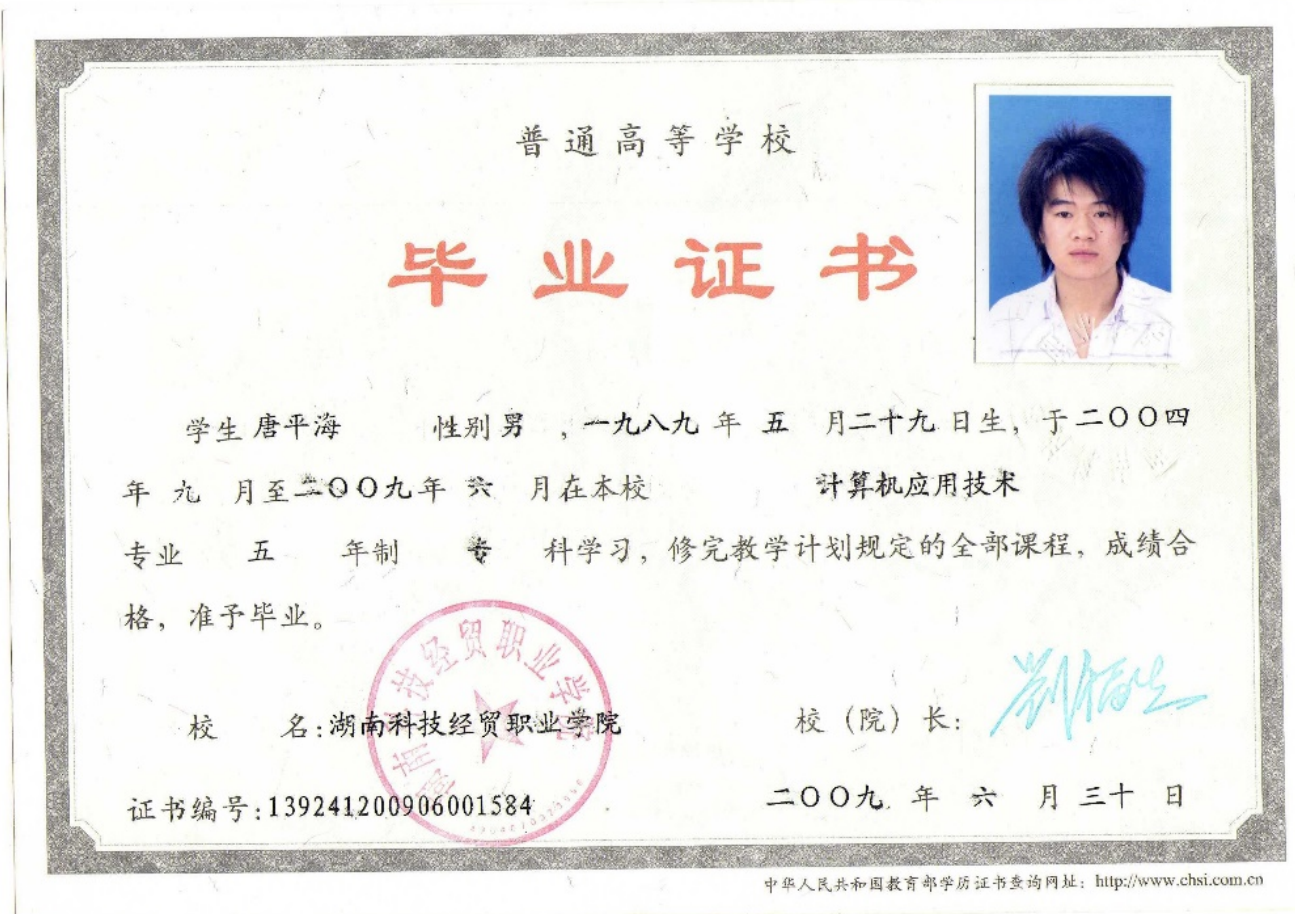 普通高等学校
毕业证书
学生 唐平海 性别 男 ,一九八九 年 五 月二十九 日生, 于二〇〇四
年 九 月至二〇〇九年 六 月在本校 计算机应用技术
专业 五 年制 专 科学习, 修完教学计划规定的全部课程, 成绩合
格, 准予毕业。
湖南科技经贸职业学院
校 名:湖南科技经贸职业学院
校(院)长:
证书编号:139241200906001584
二〇〇九 年 六 月 三十 日
中华人民共和国教育部学历证书查询网址: http://www.chsi.com.cn